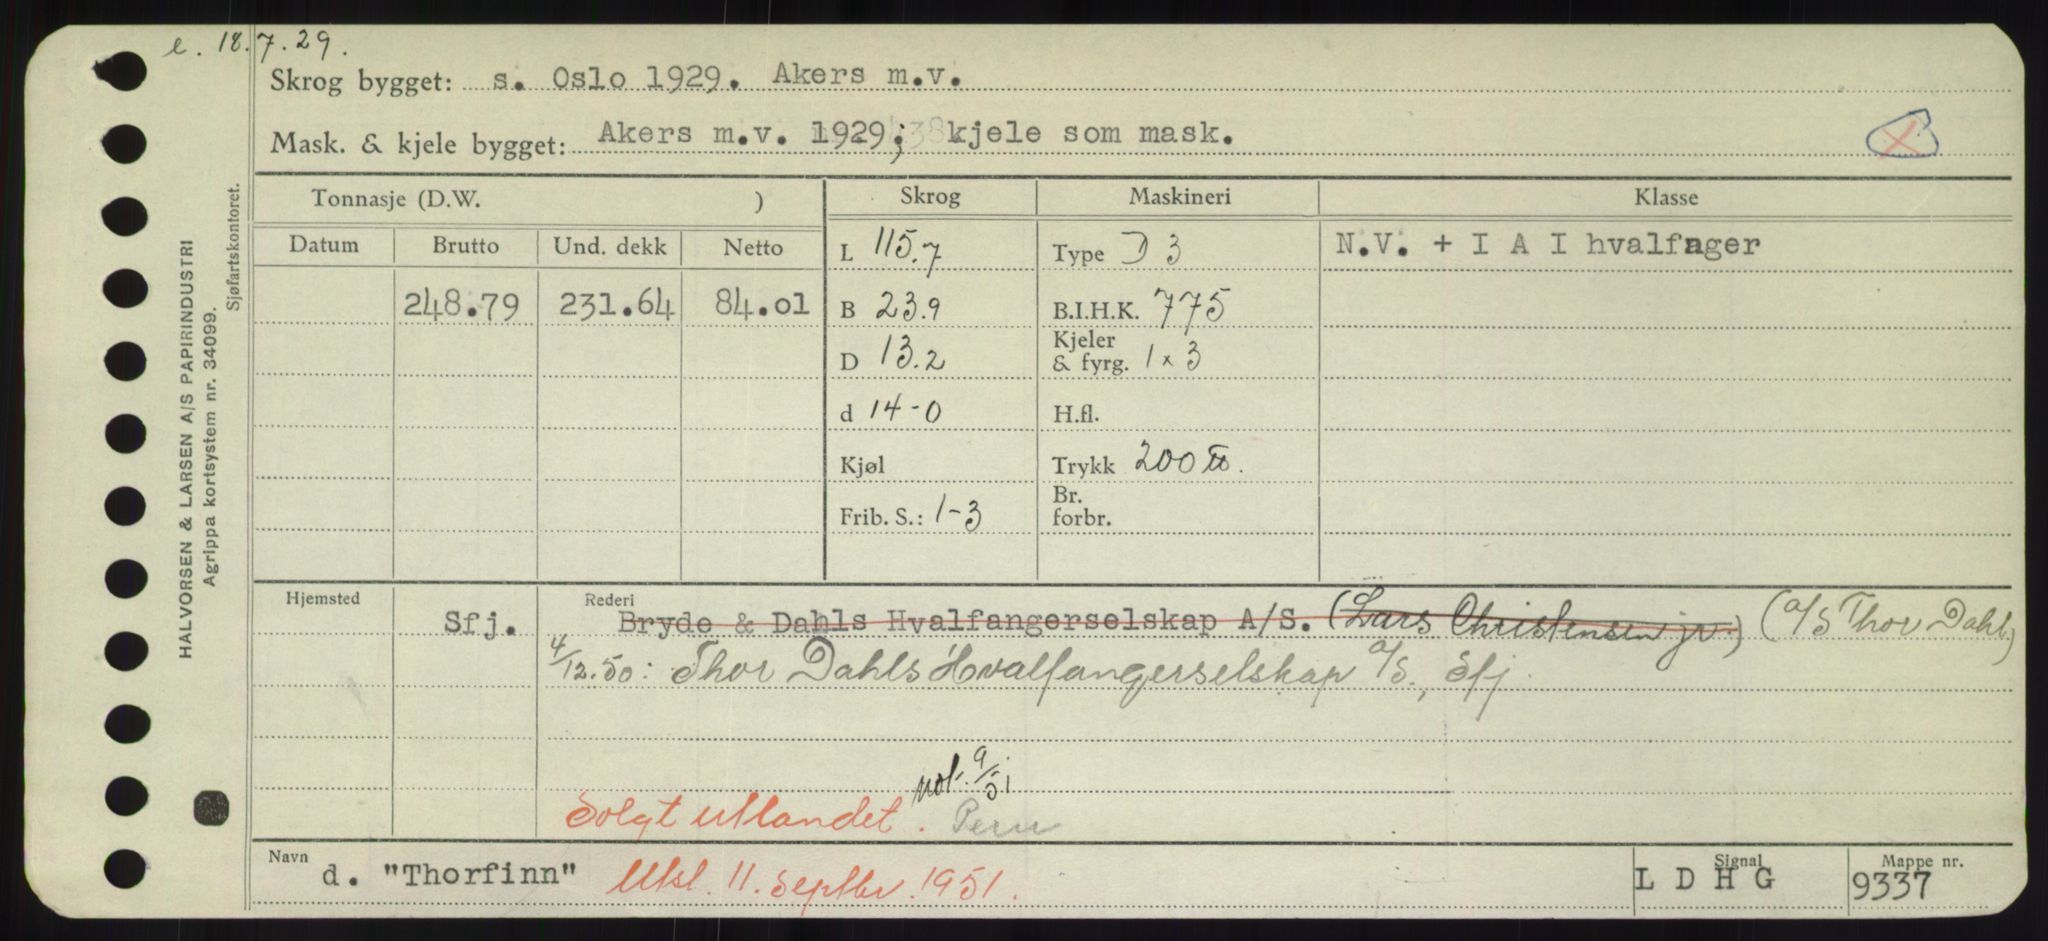 e. 18.7.29.
Skrog bygget: s. Oslo 1929. Akers m.v.
Mask. & kjele bygget: Akers m.v. 1929; kjele som mask.
Tonnasje (D.W. ) Skrog Maskineri Klasse
Datum Brutto Und. dekk Netto L 115.7 Type D 3 N.V. + I A I hvalfnger
248.79 231.64 84.01 B 23.9 B.I.H.K. 775
D 13.2 Kjeler & fyrg. 1 x 3
d 14-0 H.fl.
Kjøl Trykk 200 ℔.
Frib. S.: 1-3 Br. forbr.
Hjemsted Rederi
Sfj. Bryde & Dahls Hvalfangerselskap A/S. (Lars Christensen jr.) (A/S Thor Dahl)
4/12.50: Thor Dahls Hvalfangerselskap A/S., Sfj.
not. 9/51
Solgt utlandet. Peru
Navn Signal Mappe nr.
d. "Thorfinn" Utsl. 11. septbr. 1951. L D H G 9337
HALVORSEN & LARSEN A/S PAPIRINDUSTRI
Agrippa kortsystem nr. 34099.
Sjøfartskontoret.